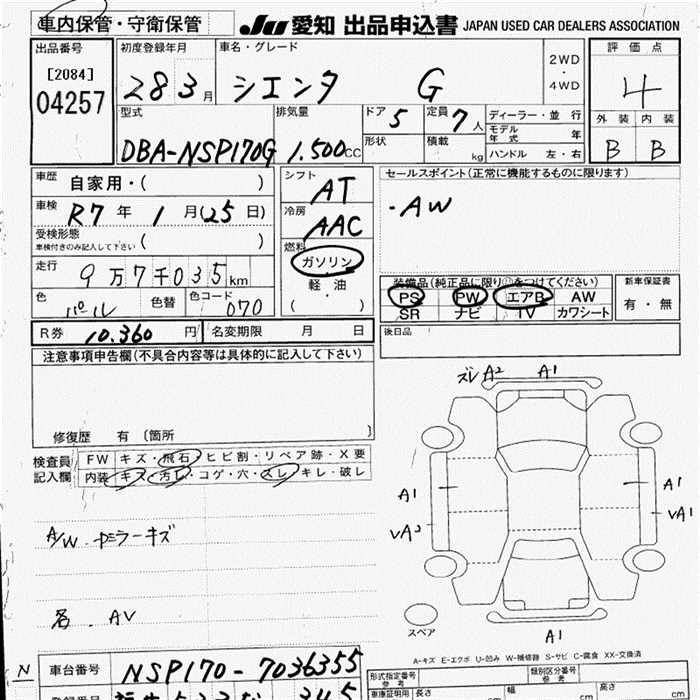 車内保管・守衛保管
JU 愛知 出品申込書 JAPAN USED CAR DEALERS ASSOCIATION
出品番号
[2084]
04257
初度登録年月
28 3月
車名・グレード
シエンタ G
2WD
・
4WD
評価点
4
外装 内装
B B
型式
DBA-NSP170G
排気量
1.500cc
ドア 5
形状
定員 7人
積載 kg
ディーラー・並行
モデル年式 年
ハンドル 左・右
車歴 自家用・( )
車検 R7年 1月(25日)
受検形態
車検付きのみ記入して下さい ( )
走行 9万7千035km
色 パール 色替 色コード 070
シフト AT
冷房 AAC
燃料
ガソリン
軽油
( ・ )
セールスポイント(正常に機能するものに限ります)
・AW
装備品(純正品に限り○をつけてください)
PS PW エアB AW
SR ナビ TV カワシート
新車保証書
有・無
R券 10.360円 名変期限 月 日
後日品
注意事項申告欄(不具合内容等は具体的に記入して下さい)
修復歴 有 〔箇所 〕
検査員記入欄
FW キズ・飛石・ヒビ割・リペア跡・X要
内装 キズ・汚レ・コゲ・穴・スレ・キレ・破レ
A/W.
ミラーキズ
各.AV
ズレ A2 A1
A1
VA2
A1
VA1
スペア
A1
A-キズ E-エクボ U-凹み W-補修跡 S-サビ C-腐食 XX-交換済
N
車台番号 NSP170-7036355
形式指定番号 参考
類別区分番号 参考
車庫証明参考 長さ cm 幅 cm 高さ cm
登録番号